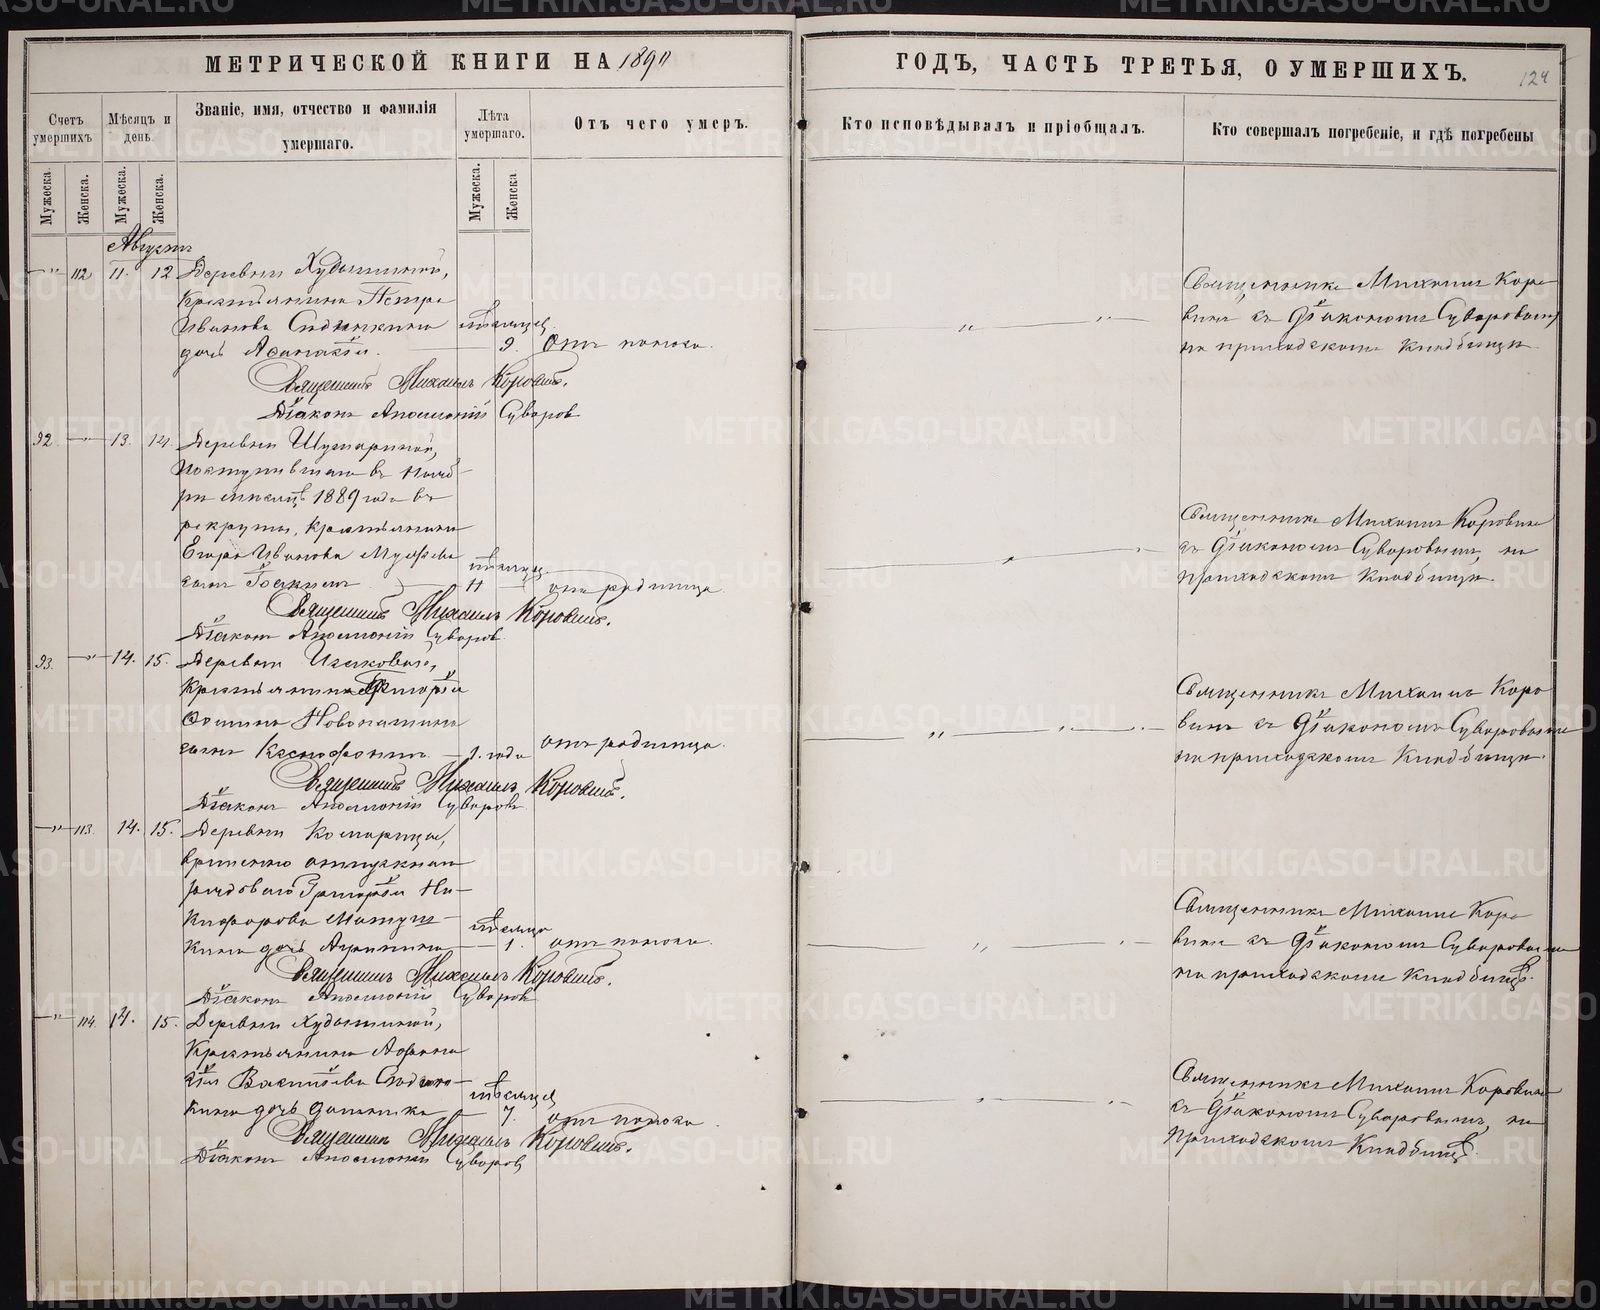 МЕТРИЧЕСКОЙ КНИГИ НА 1890
ГОДЪ, ЧАСТЬ ТРЕТЬЯ, О УМЕРШИХЪ.
124
Счетъ умершихъ
Мѣсяцъ и день.
Званіе, имя, отчество и фамилія умершаго.
Лѣта умершаго.
Отъ чего умеръ.
Кто исповѣдывалъ и пріобщалъ.
Кто совершалъ погребеніе, и гдѣ погребены
Мужеска.
Женска.
Мужеска.
Женска.
Мужеска.
Женска
Августъ
" 112 11. 12
Деревни
Крестьянина Петра
Иванова
дочь
мѣсяцев
9.
Отъ поноса.
Священникъ Михаилъ Коровинъ.
Діаконъ Аполлоній Суворов
Священникъ Михаилъ Коро
винъ съ Діакономъ Суворовымъ
на приходскомъ Кладбищѣ
92. " 13. 14.
Деревни
Поступившаго въ Нояб
ри мѣсяцѣ 1889 года въ
рекруты, Крестьянина
Егора Иванова
сынъ
мѣсяцев.
11
отъ родимца.
Священникъ Михаилъ Коровинъ.
Діаконъ Аполлоній Суворов
Священникъ Михаилъ Коровинъ
съ Діакономъ Суворовымъ, на
приходскомъ Кладбищѣ.
93. " 14. 15.
Деревни
Крестьянина Григорія
сынъ Ксенофонтъ
1. года
отъ родимца.
Священникъ Михаилъ Коровинъ.
Діаконъ Аполлоній Суворовъ
Священникъ Михаилъ Коро
винъ съ Діакономъ Суворовымъ
на приходскомъ Кладбищѣ.
" 113. 14. 15.
Деревни
временно отпускнаго
рядоваго Григорія Ни-
кифорова Матуш-
кина дочь
мѣсяца
1.
отъ поноса.
Священникъ Михаилъ Коровинъ.
Діаконъ Аполлоній Суворов
Священникъ Михаилъ Коро
винъ съ Діакономъ Суворовымъ
на приходскомъ Кладбищѣ.
" 114. 14. 15.
Деревни
Крестьянина Афана
сія Васильева
кина дочь
мѣсяцев
7.
отъ поноса.
Священникъ Михаилъ Коровинъ.
Діаконъ Аполлоній Суворов
Священникъ Михаилъ Коровинъ
съ Діакономъ Суворовымъ, на
приходскомъ Кладбищѣ.
METRIKI.GASO-URAL.RU